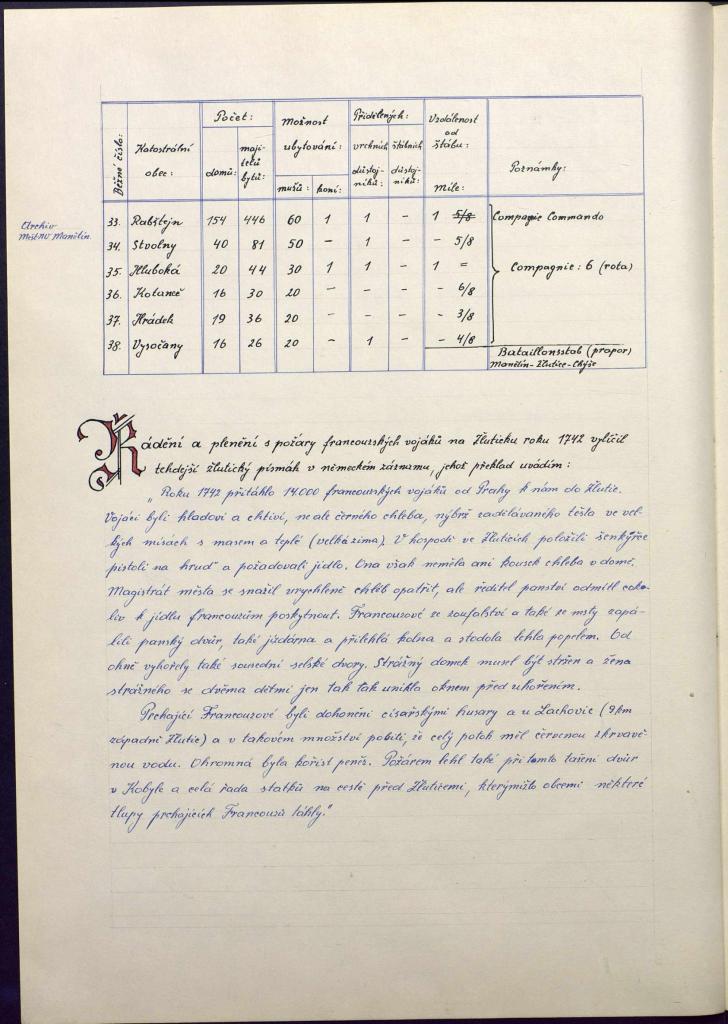 Běžné číslo: Katastrální obec: Počet: domů: majitelů bytů: Možnost ubytování: mužů: koní: Přidělených: vrchních důstojníků: štábních důstojníků: Vzdálenost od štábu: Míle: Poznámky:
Archiv
MěstNV Manětín.
33. Rabštejn 154 446 60 1 1 – 1 5/8 Compagnie Commando
34. Stvolny 40 81 50 – 1 – – 5/8
35. Hluboká 20 44 30 1 1 – 1 = Compagnie: 6 (rota)
36. Kotaneč 16 30 20 – – – – 6/8
37. Hrádek 19 36 20 – – – – 3/8
38. Vysočany 16 26 20 – 1 – – 4/8
Bataillonsstab (prapor)
Manětín-Žlutice-Chýše
Řádění a plenění s požáry francouzských vojáků na Žluticku roku 1742 vylíčil
tehdejší žlutický písmák v německém záznamu, jehož překlad uvádím:
„Roku 1742 přitáhlo 14.000 francouzských vojáků od Prahy k nám do Žlutic.
Vojáci byli hladoví a chtiví, ne ale černého chleba, nýbrž zadělávaného těsta ve vel-
kých mísách s masem a teplé (velká zima). V hospodě ve Žluticích položili šenkýřce
pistoli na hruď a požadovali jídlo. Ona však neměla ani kousek chleba v domě.
Magistrát města se snažil urychleně chléb opatřit, ale ředitel panství odmítl coko-
liv k jídlu francouzům poskytnout. Francouzové ze zoufalství a také ze msty zapá-
lili panský dvůr, také jízdárna a přilehlá kolna a stodola lehla popelem. Od
ohně vyhořely také sousední selské dvory. Strážný domek musel být stržen a žena
strážného se dvěma dětmi jen tak tak unikla oknem před uhořením.
Prchající Francouzové byli dohoněni císařskými husary a u Lachovic (9km
západně Žlutic) a v takovém množství pobiti, že celý potok měl červenou zkrvavě-
nou vodu. Ohromná byla kořist peněz. Požárem lehl také při tomto tažení dvůr
v Kobyle a celá řada statků na cestě před Žluticemi, kterýmižto obcemi některé
tlupy prchajících Francouzů táhly."